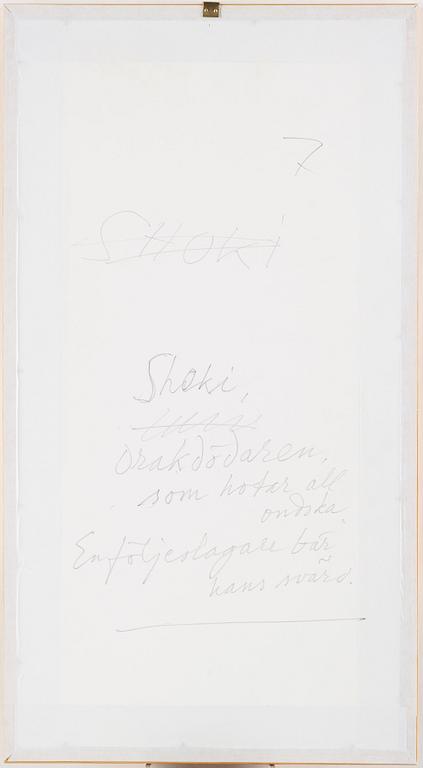 7
SHOKi
Shoki,
Drakdödaren,
som hotar all
ondska.
En följeslagare bär
hans svärd.